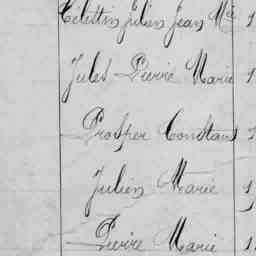 Célestin Julien Jean Mie 1
Jules Pierre Marie 1
Prosper Constant 1
Julien Marie 1
Pierre Marie 1